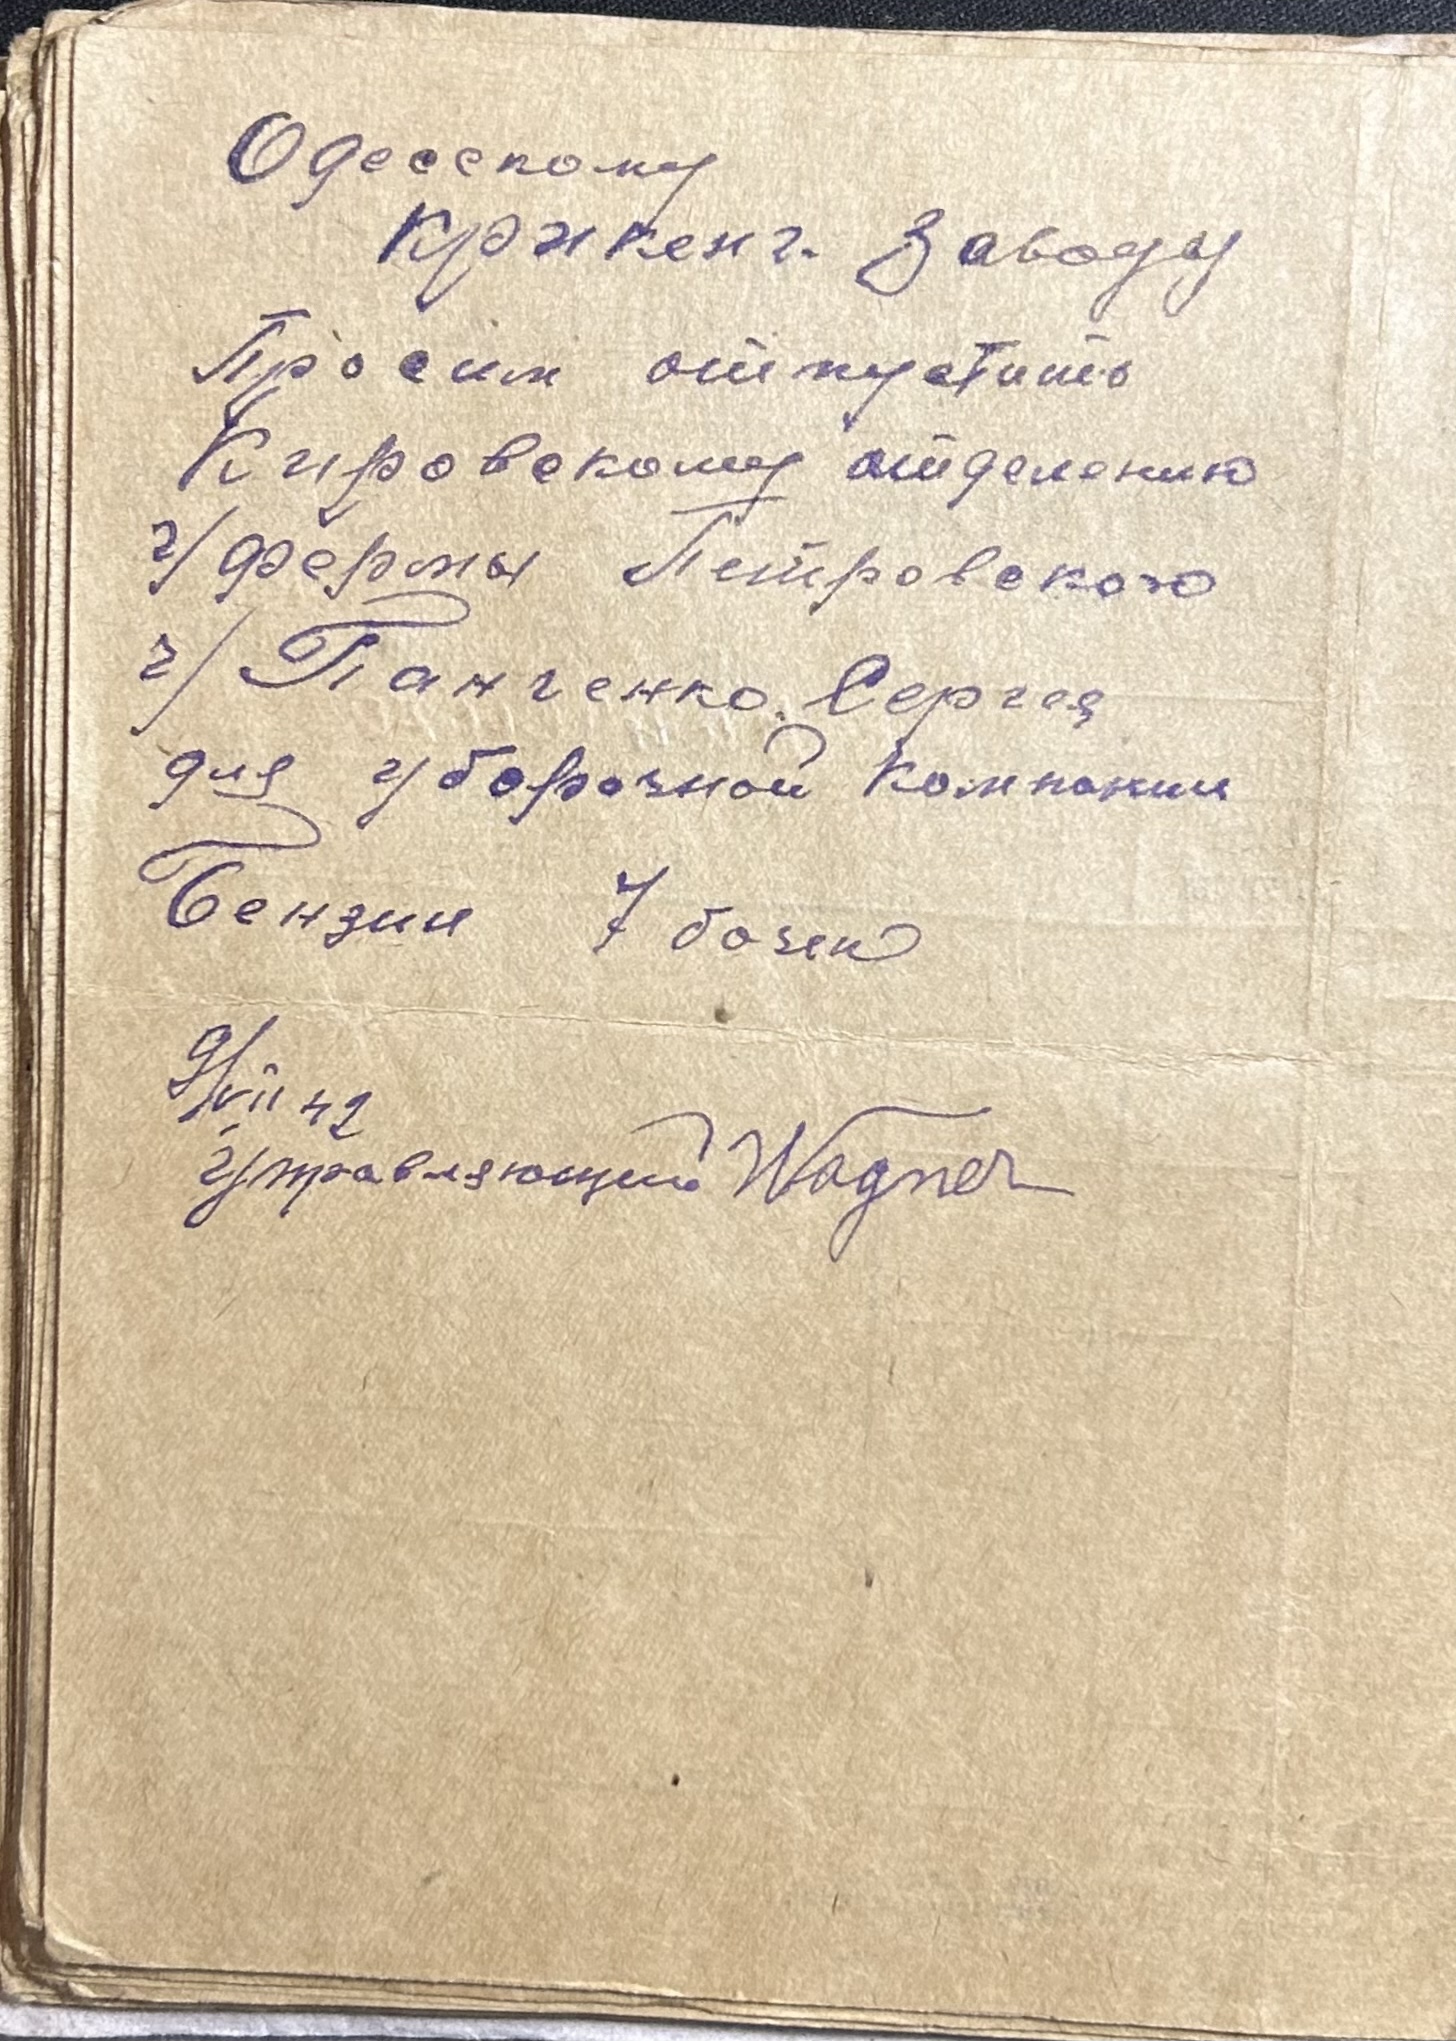 Одесскому
Крекенг. Заводу
Просим отпустить
Кировскому отделению
г/фермы Петровского
ч/ Панченко Сергея
для уборочной Компании
Бензин 7 бочек
9/VII 42
Управляющий Wagner